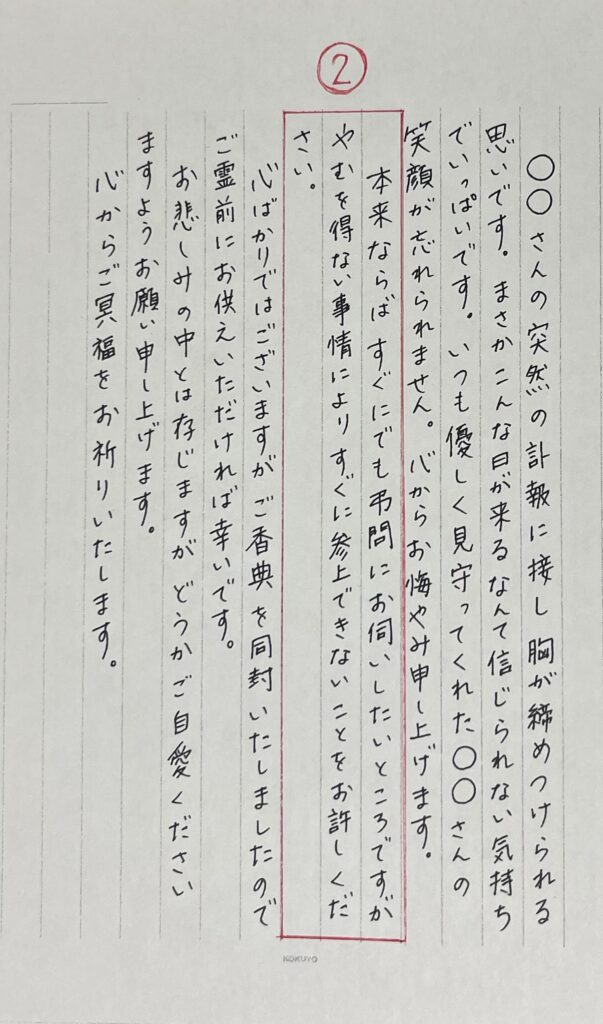 ②
○○さんの突然の訃報に接し胸が締めつけられる
思いです。まさかこんな日が来るなんて信じられない気持ち
でいっぱいです。いつも優しく見守ってくれた○○さんの
笑顔が忘れられません。心からお悔やみ申し上げます。
本来ならばすぐにでも弔問にお伺いしたいところですが
やむを得ない事情によりすぐに参上できないことをお許しくだ
さい。
心ばかりではございますがご香典を同封いたしましたので
ご霊前にお供えいただければ幸いです。
お悲しみの中とは存じますがどうかご自愛ください
ますようお願い申し上げます。
心からご冥福をお祈りいたします。
KOKUYO